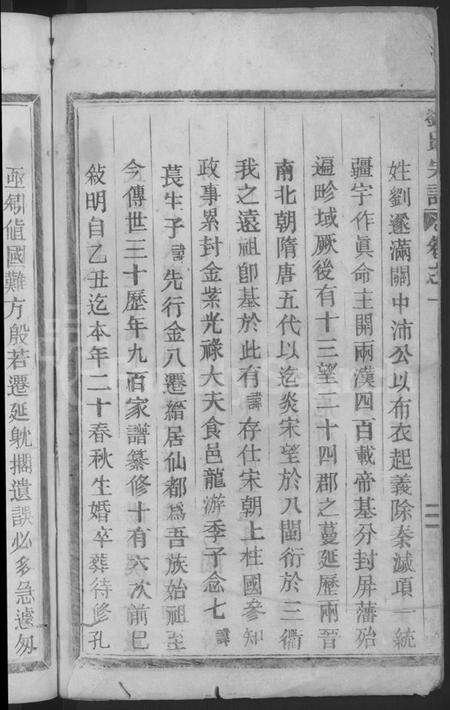 劉氏宗譜 卷之一
姓劉遂滿關中沛公以布衣起義除秦滅項一統
疆宇作眞命主開兩漢四百載帝基分封屏藩殆
遍畛域厥後有十三望二十四郡之蔓延歷兩晉
南北朝隋唐五代以迄炎宋望於八閩衍於三衢
我之遠祖卽基於此有諱存仕宋朝上柱國參知
政事累封金紫光祿大夫食邑龍游季子念七諱
萇生子諱先行金八遷縉居仙都爲吾族始祖至
今傳世三十歷年九百家譜纂修十有六次前已
敍明自乙丑迄本年二十春秋生婚卒葬待修孔
亟矧値國難方殷若遷延躭擱遺誤必多急遽匆